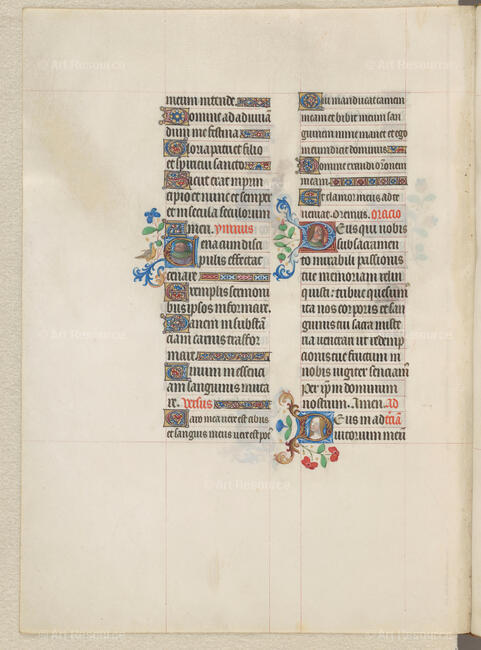 meum intende.
Domine ad adiuvā
dum me festina
Gloria patri et filio
et spiritui sancto.
Sicut erat in prin
cipio et nunc et semper
et in secula seculorum
Amen. ymnus
Cena cum disci
pulis effectac
cenare
Exemplis sermoni
bus ipsos informare.
Panem in substā
ciam carnis trāsfor
mare
Vinum in essenci
am sanguinis muta
re. versus
Caro mea vere est cibus
et sanguis meus vere est pot̄
Qui manducat carnem
meam et bibit meum san
guinem in me manet et ego
in eum dicit dominus
Domine exaudi or̄onem
meam
Et clamor meus ad te
veniat. Oremus. Oracio
Deus qui nobis
sub sacramen
to mirabili passionis
tue memoriam relin
quisti: tribue quesum̄
ita nos corporis et san
guinis tui sacra miste
ria venerari ut redemp
cionis tue fructum in
nobis iugiter senciam̄
per xp̄m dominum
nostrum. Amen. Ad
Deus in ad tciā
iutorium meū
© Art Resource
© Art Resource
© Art Resource
© Art Resource
© Art Resource
© Art Resource